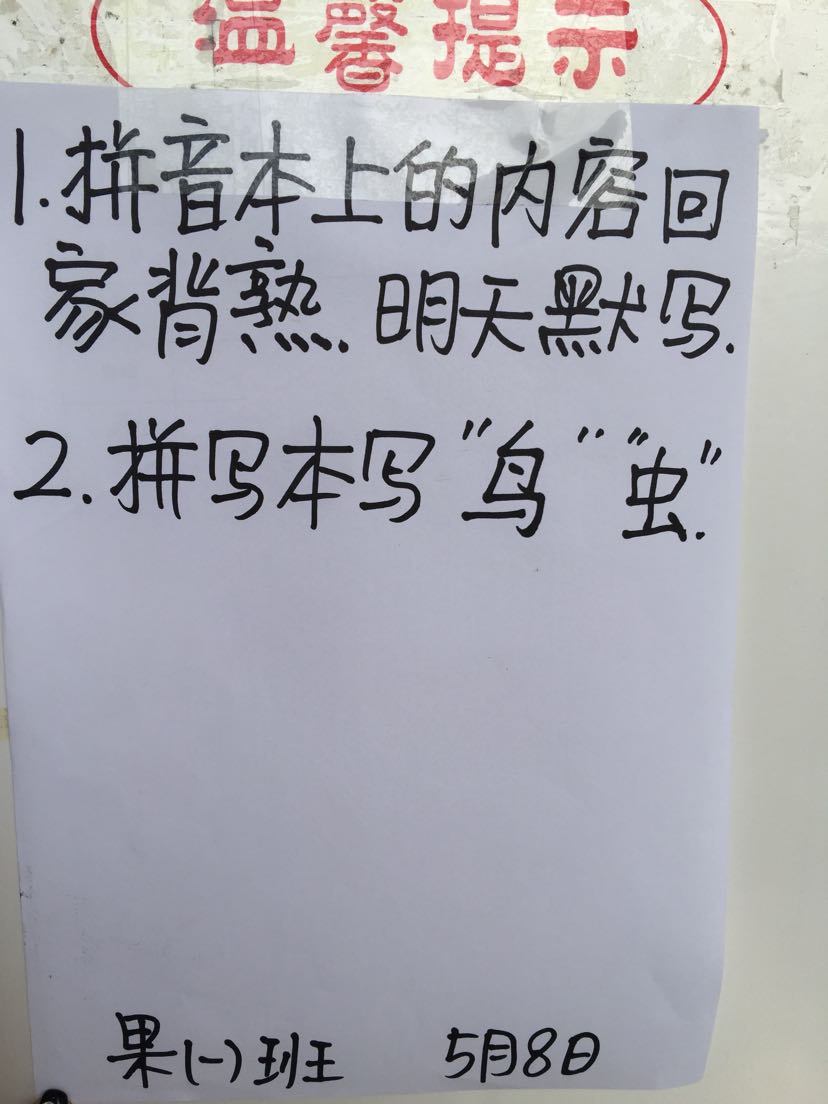 温馨提示
1.拼音本上的内容回
家背熟.明天默写.
2.拼写本写"鸟""虫".
果(一)班 5月8日